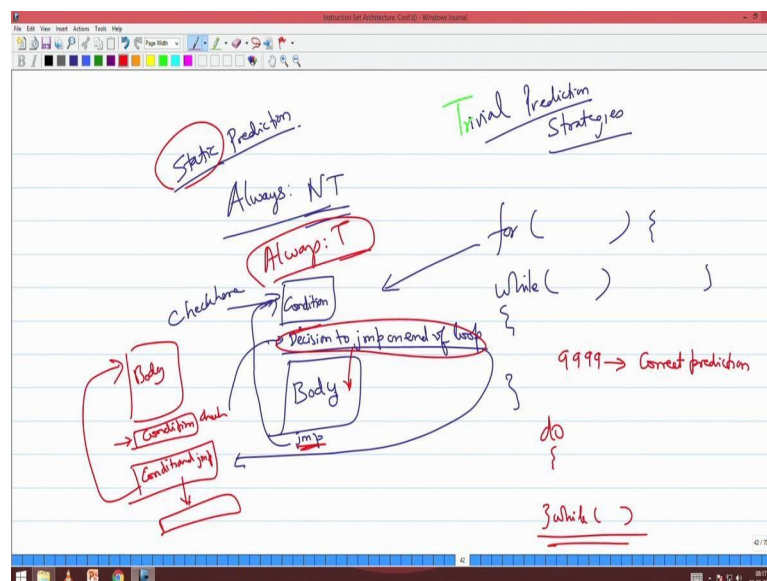 Instruction Set Architecture. Cont(d) - Windows Journal
File Edit View Insert Actions Tools Help
Page Width
B I
Trivial Prediction
Strategies
Static Prediction.
Always: NT
Always: T
for ( ) {
while ( )
{
}
}
check here
Condition
Decision to jmp on end of loop
Body
jmp
Body
Condition check
Conditional jmp
9999 → Correct prediction
do
{
} while ( )
42